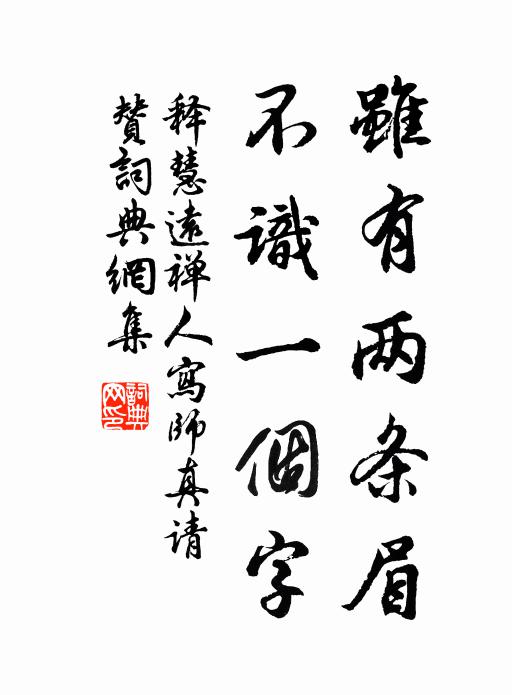 雖有两条眉
不識一個字
释慧遠禅人寫師真请
贊詞典網集
詞典网印